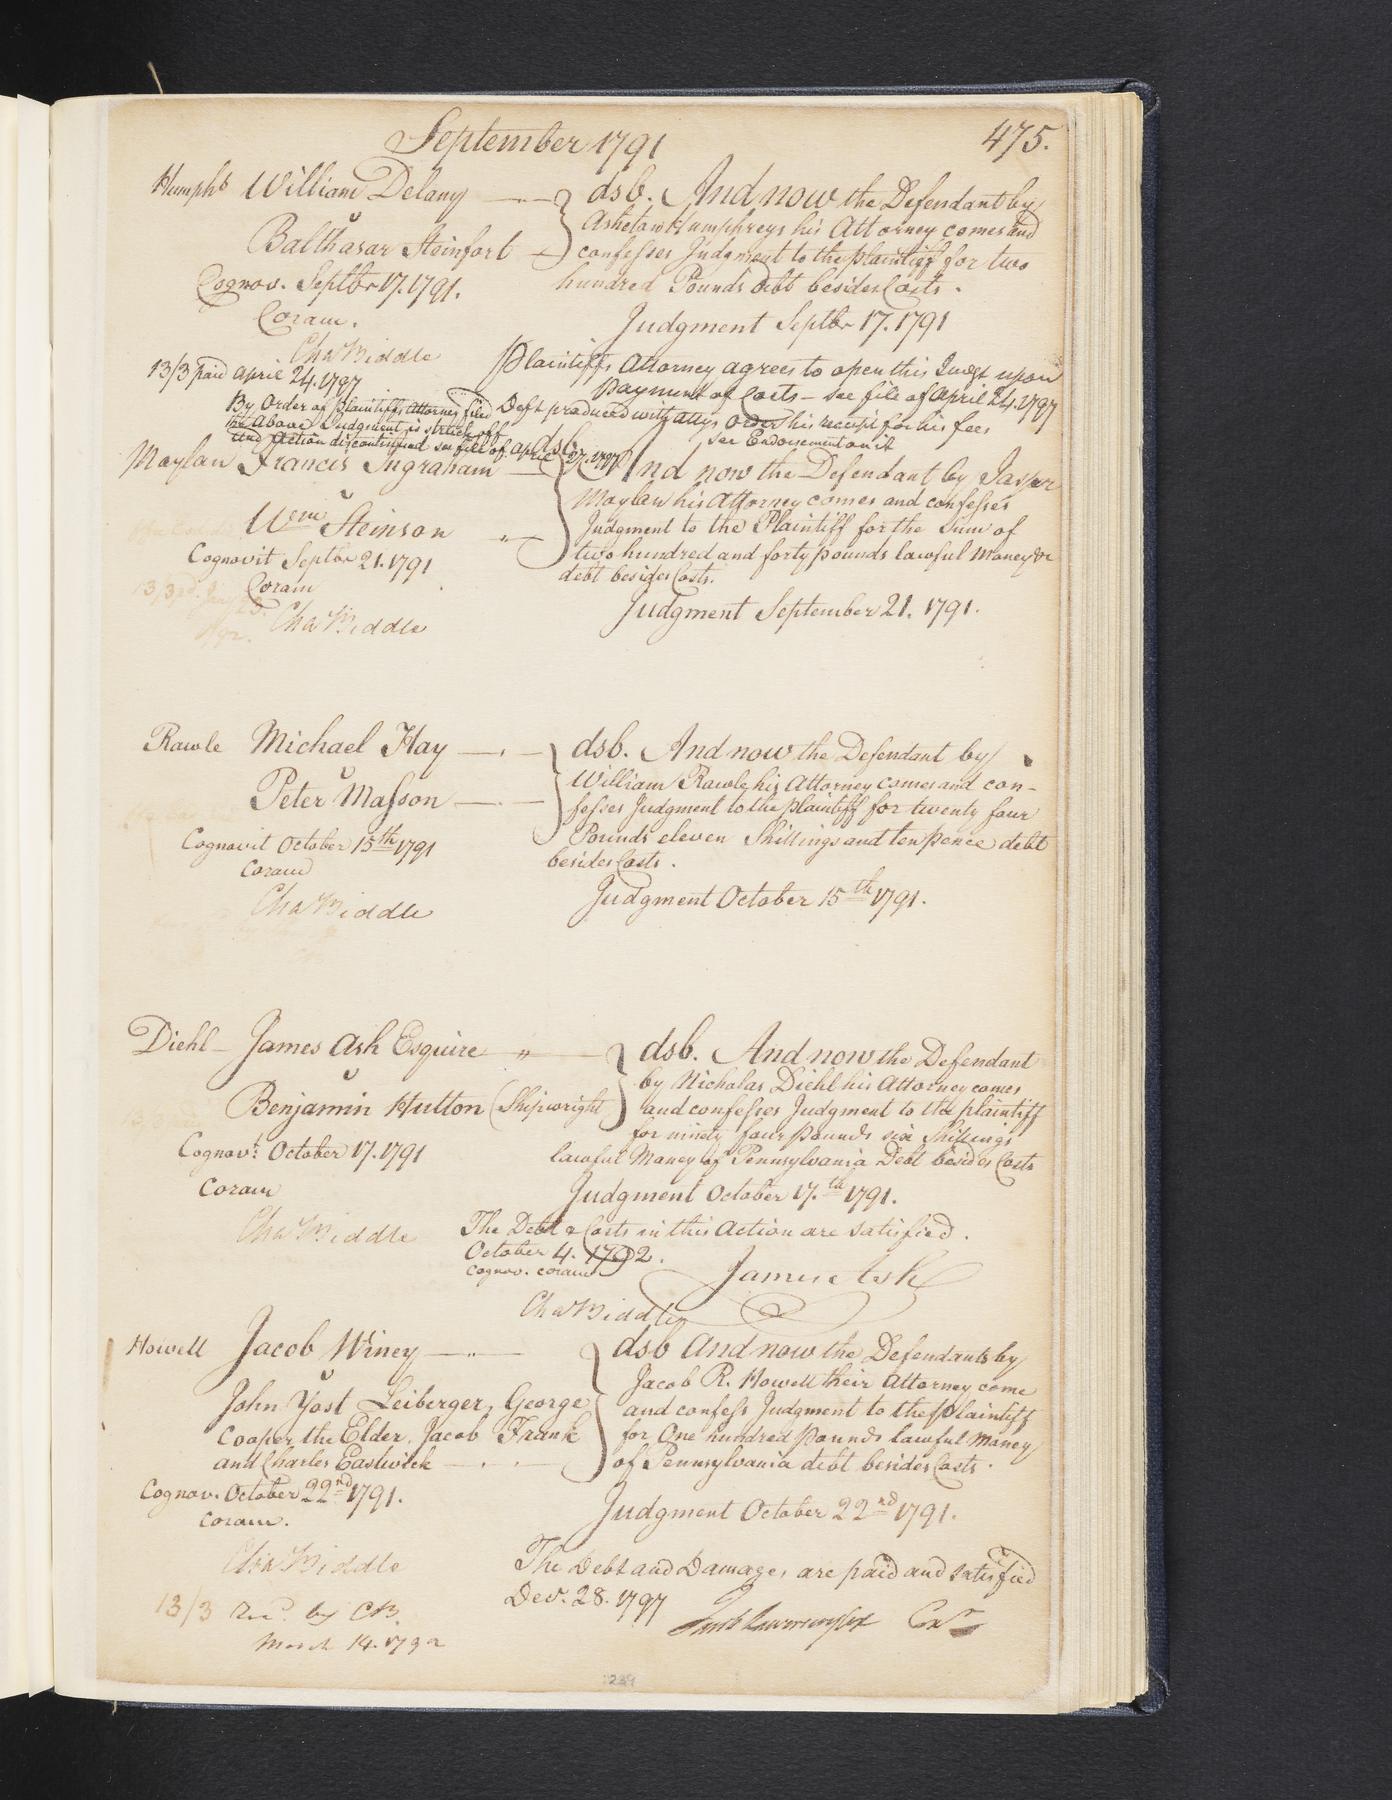 September 1791
475.
Humphs William Delany
v
Balthasar Steinfort
Cognov. Septbr 17. 1791.
Coram.
Cha Biddle
dsb. And now the Defendant by
Ashetaw Humphreys his Attorney comes and
confesses Judgment to the plaintiff for two
hundred Pounds debt besides Costs.
Judgment Septbr 17. 1791
13/3 paid april 24. 1797
Plaintiffs Attorney agrees to open this Judgt upon
Payment of Costs – see file of April 24. 1797
By Order of Plaintiffs Attorney filed
the Above Judgment is struck off
and Action discontinued see file of April
27. 1797
Deft produced with attys Order his receipt for his fees
see Endorsement on it
Moylan Francis Ingraham
v
Wm Steinson
Cognovit Septbr 21. 1791
Coram
Cha Biddle
13/3
dsb.
And now the Defendant by Jasper
Moylan his Attorney comes and confesses
Judgment to the Plaintiff for the Sum of
two hundred and forty pounds lawful Money &c
debt besides Costs.
Judgment September 21. 1791.
Rawle Michael Hay
v
Peter Masson
Cognovit October 15th 1791
Coram
Cha Biddle
dsb. And now the Defendant by
William Rawle his Attorney comes and con-
fesses Judgment to the plaintiff for twenty four
Pounds eleven Shillings and ten pence debt
besides Costs.
Judgment October 15th 1791.
Diehl – James Ash Esquire
v
Benjamin Hutton (Shipwright
Cognovt. October 17. 1791
Coram
Cha Biddle
dsb. And now the Defendant
by Nicholas Diehl his Attorney comes
and confesses Judgment to the plaintiff
for ninety four pounds six Shillings
lawful Money of Pennsylvania Debt besides Costs
Judgment October 17.th 1791.
The Debt & Costs in this Action are satisfied.
October 4. 1792.
Cognov. coram
James Ash
Cha Biddle
Howell Jacob Winey
v
John Yost Leiberger, George
Cooper the Elder, Jacob Frank
and Charles Eastwick
Cognov. October 22nd 1791.
Coram.
Cha Biddle
13/3 Recd. by CB.
March 14. 1792
dsb And now the Defendants by
Jacob R. Howell their Attorney come
and confess Judgment to the plaintiff
for One hundred pounds lawful Money
of Pennsylvania debt besides Costs.
Judgment October 22nd 1791.
The Debt and Damages are paid and satisfied
Decr. 28. 1797
239